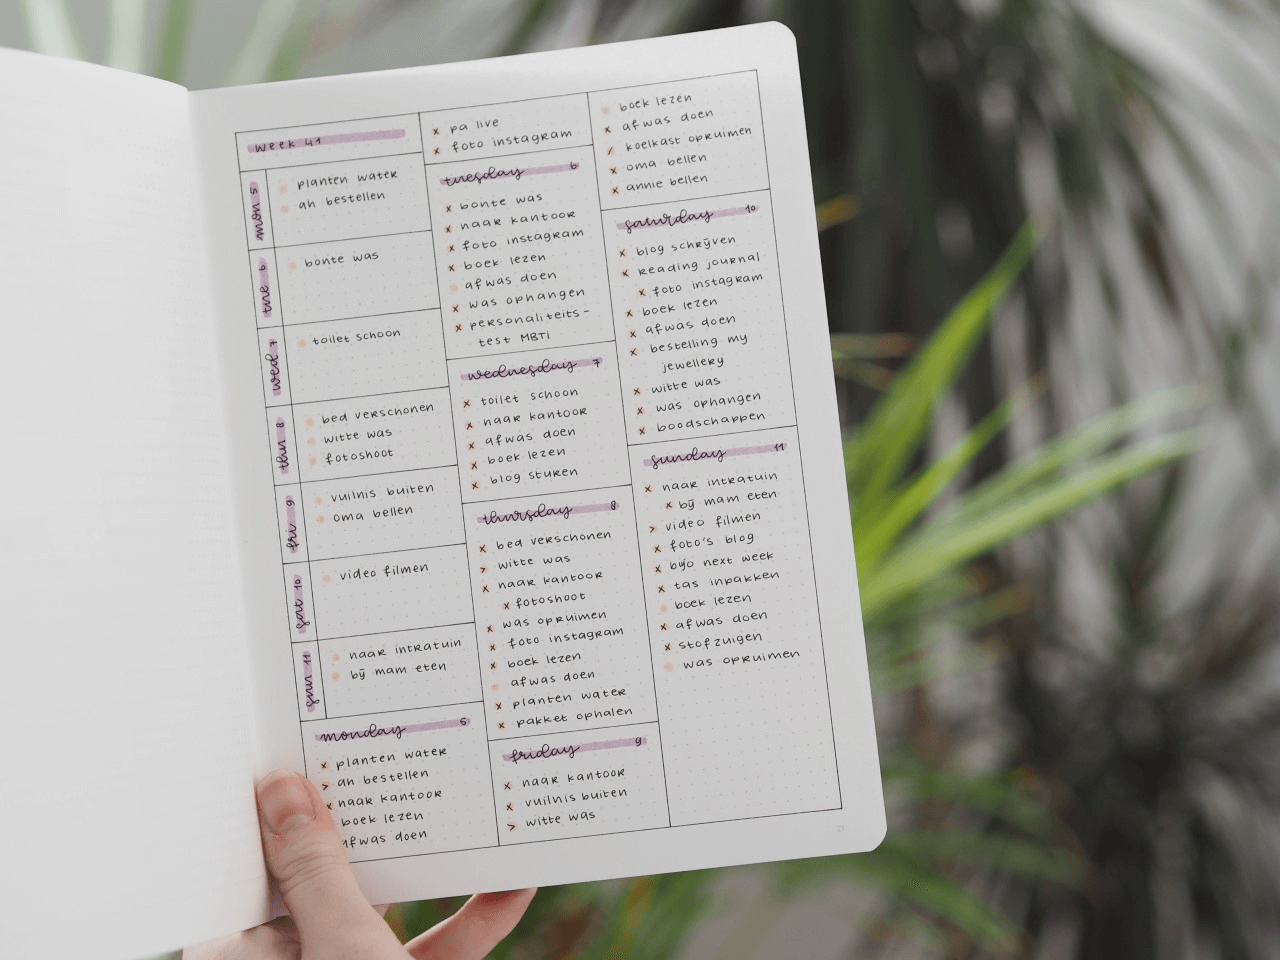 week 41
mon 5
planten water
ah bestellen
tue 6
bonte was
wed 7
toilet schoon
thu 8
bed verschonen
witte was
fotoshoot
fri 9
vuilnis buiten
oma bellen
sat 10
video filmen
sun 11
naar intratuin
bij mam eten
monday 5
x planten water
> ah bestellen
x naar kantoor
boek lezen
afwas doen
x pa live
x foto instagram
tuesday 6
x bonte was
x naar kantoor
x foto instagram
x boek lezen
afwas doen
x was ophangen
x personaliteits-
test MBTi
wednesday 7
x toilet schoon
x naar kantoor
x afwas doen
x boek lezen
x blog sturen
thursday 8
x bed verschonen
> witte was
x naar kantoor
x fotoshoot
x was opruimen
x foto instagram
x boek lezen
afwas doen
x planten water
x pakket ophalen
friday 9
x naar kantoor
x vuilnis buiten
> witte was
boek lezen
x afwas doen
/ koelkast opruimen
x oma bellen
x annie bellen
saturday 10
x blog schrijven
x reading journal
x foto instagram
x boek lezen
x afwas doen
x bestelling my
jewellery
x witte was
x was ophangen
x boodschappen
sunday 11
x naar intratuin
x bij mam eten
> video filmen
x foto's blog
x bujo next week
x tas inpakken
boek lezen
x afwas doen
x stofzuigen
was opruimen